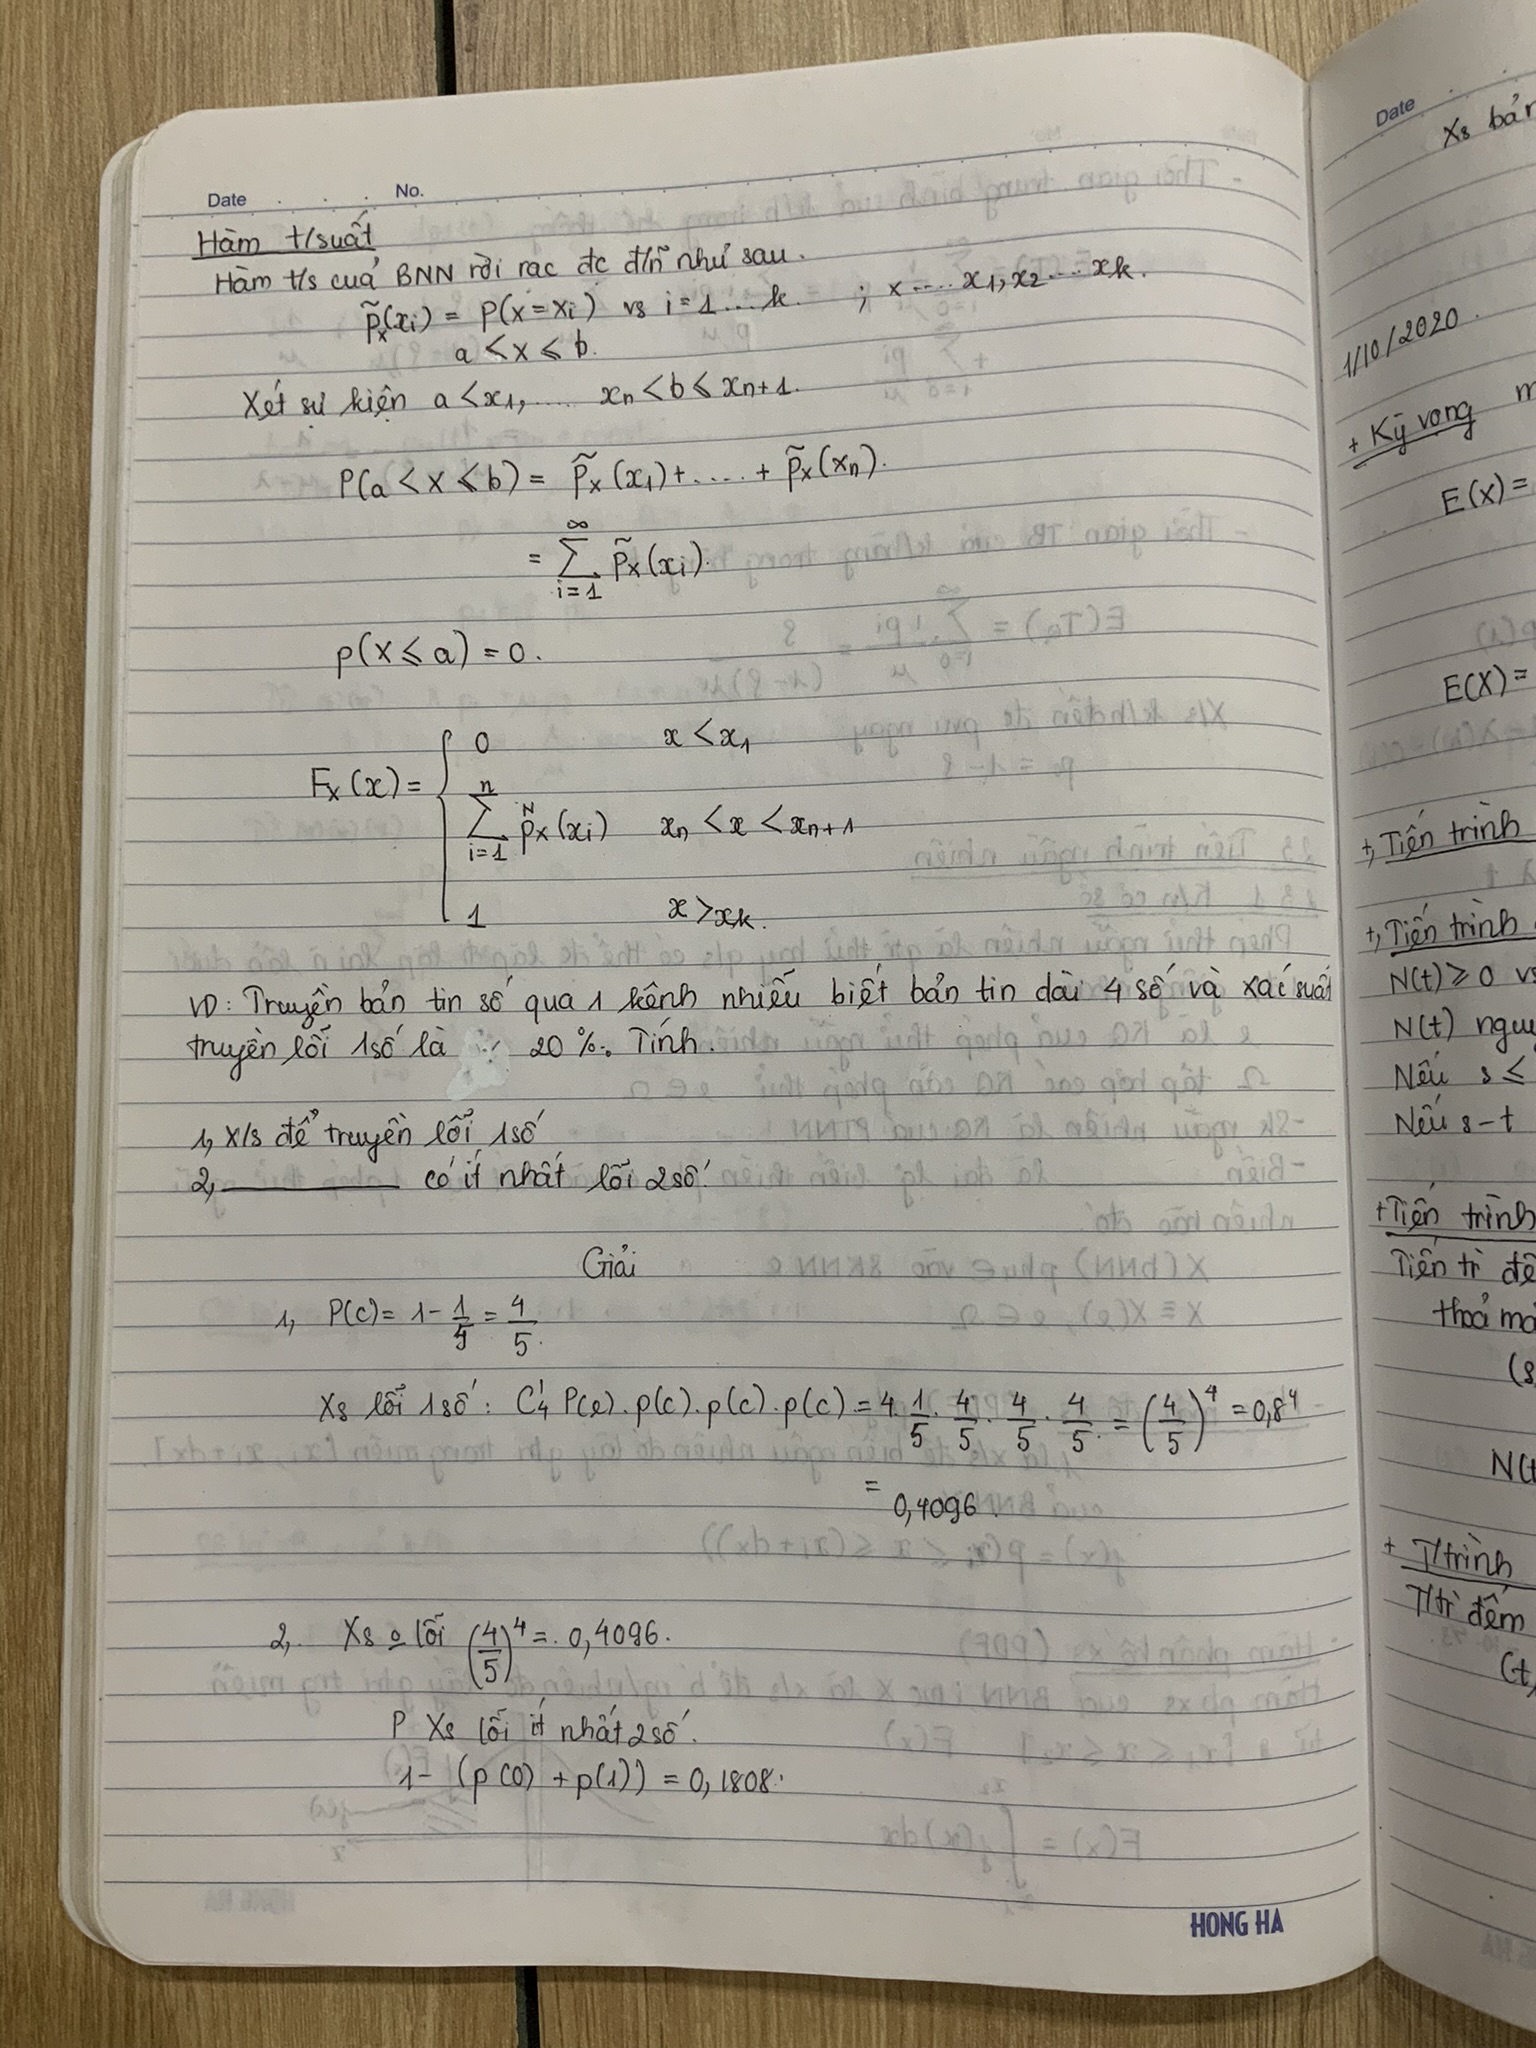 Date No.
Hàm t/suất
Hàm t/s cuả BNN rời rạc đc đ/n như sau.
p̃x(xi) = P(x=xi) vs i=1...k. ; x .... x1, x2 ... xk.
a < x ≤ b.
Xét sự kiện a < x1, .... xn < b ≤ xn+1.
P(a < x ≤ b) = p̃x(x1) + ..... + p̃x(xn).
= ∑ i=1 ∞ p̃x(xi).
p(x ≤ a) = 0.
Fx(x) = { 0 x < x1
∑ i=1 n p̃x(xi) xn < x < xn+1
1 x > xk.
VD: Truyền bản tin số qua 1 kênh nhiễu biết bản tin dài 4 số và xác suất
truyền lỗi 1số là 20%. Tính.
1, x/s để truyền lỗi 1số
2, ________ có ít nhất lỗi 2số.
Giải
1, P(c) = 1 - 1/5 = 4/5.
Xs lỗi 1số : C¹4 P(e).p(c).p(c).p(c) = 4. 1/5 . 4/5 . 4/5 . 4/5 . = (4/5)⁴ = 0,8⁴
= 0,4096.
2, Xs o lỗi (4/5)⁴ = 0,4096.
P Xs lỗi ít nhất 2số.
1 - (p(0) + p(1)) = 0,1808.
HONG HA
Date
Xs bản
1/10/2020.
+ Kỳ vọng
E(x) =
E(X) =
+, Tiến trình
+, Tiến trình
N(t) ≥ 0 vs
N(t) nguy
Nếu s ≤
Nếu s - t
+ Tiến trình
Tiến trì đê
thoả mã
N(t
+ T/trình
T/trì đếm
(t,